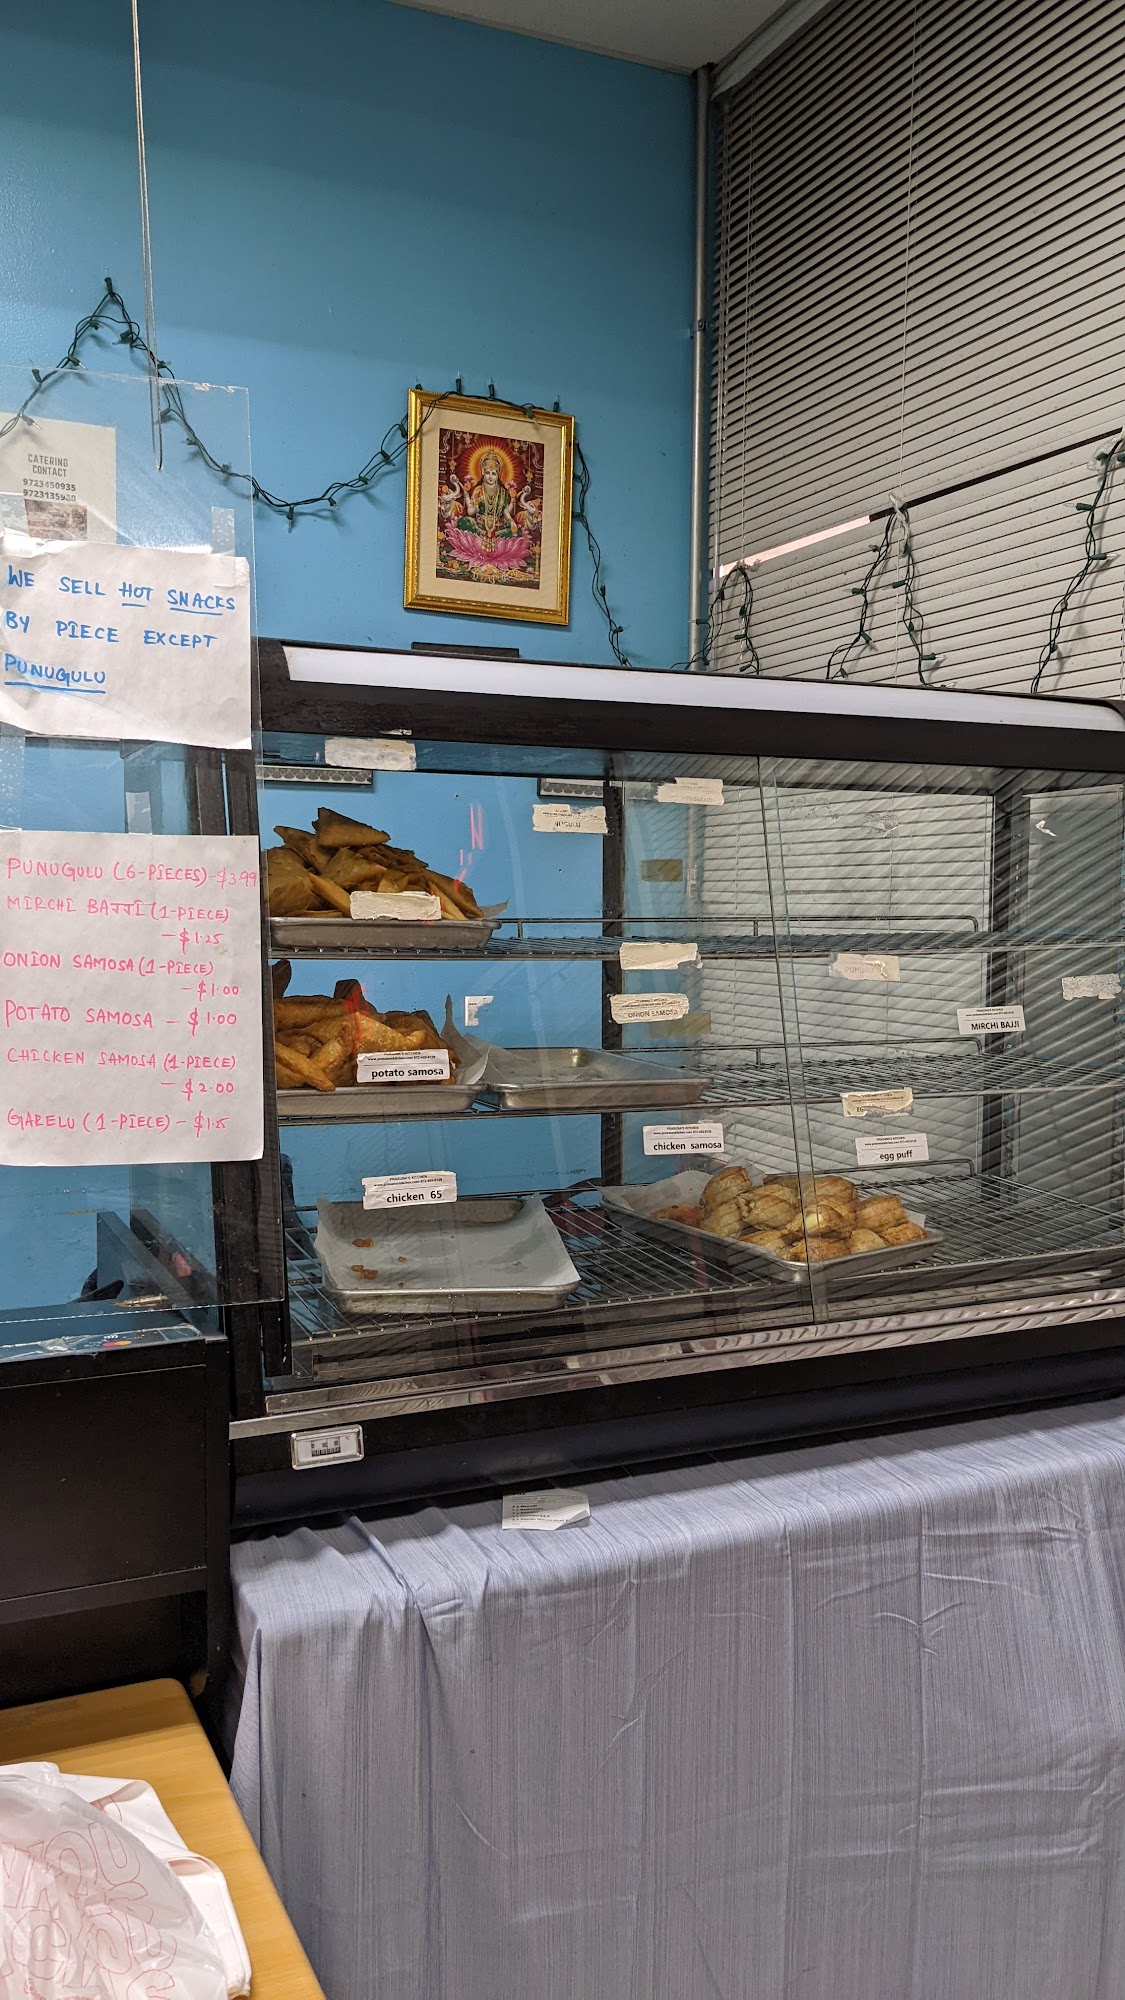 CATERING
CONTACT
9723450935
9723135980
WE SELL HOT SNACKS
BY PIECE EXCEPT
PUNUGULU
PUNUGULU (6-PIECES)-$3.99
MIRCHI BAJJI (1-PIECE)
- $1.25
ONION SAMOSA (1-PIECE)
- $1.00
POTATO SAMOSA - $1.00
CHICKEN SAMOSA (1-PIECE)
- $2.00
GARELU (1-PIECE) - $1.25
ONION SAMOSA
MIRCHI BAJJI
potato samosa
chicken samosa
egg puff
chicken 65